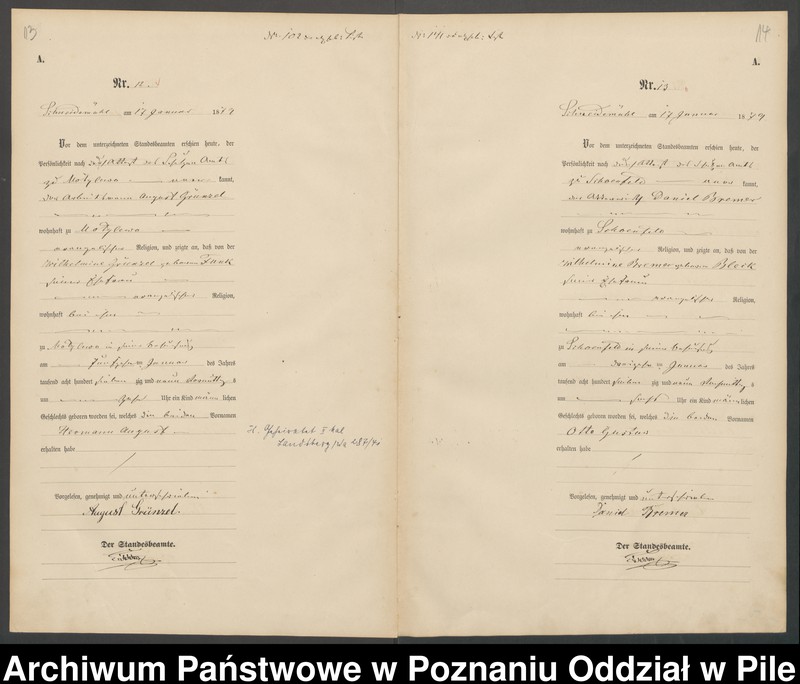 13
A.
Nr. 12
Schneidemühl am 17 Januar 1879
Vor dem unterzeichneten Standesbeamten erschien heute, der
Persönlichkeit nach durch Attest des Amts
zu Motylewo kannt,
der August Grünzel
wohnhaft zu Motylewo
evangelischer Religion, und zeigte an, daß von der
Wilhelmine Grünzel geborene Funk
seiner Ehefrau
evangelischer Religion,
wohnhaft bei ihm
zu Motylewo in seiner Behausung
am fünfzehn Januar des Jahres
tausend acht hundert sieben zig und neun Vormittags
um zehn Uhr ein Kind männlichen
Geschlechts geboren worden sei, welches die beiden Vornamen
Hermann August
erhalten habe
Vorgelesen, genehmigt und unterschrieben
August Grünzel
Der Standesbeamte.
Landsberg
14
A.
Nr. 13
Schneidemühl am 17 Januar 1879
Vor dem unterzeichneten Standesbeamten erschien heute, der
Persönlichkeit nach durch Attest des Amts
zu Schoenfeld kannt,
der Daniel Bremer
wohnhaft zu Schoenfeld
evangelischer Religion, und zeigte an, daß von der
Wilhelmine Bremer geborene Bleck
seiner Ehefrau
evangelischer Religion,
wohnhaft bei ihm
zu Schoenfeld in seiner Behausung
am dreizehn Januar des Jahres
tausend acht hundert sieben zig und neun
um Uhr ein Kind männlichen
Geschlechts geboren worden sei, welches die beiden Vornamen
Otto Gustav
erhalten habe
Vorgelesen, genehmigt und unterschrieben
Daniel Bremer
Der Standesbeamte.
Archiwum Państwowe w Poznaniu Oddział w Pile